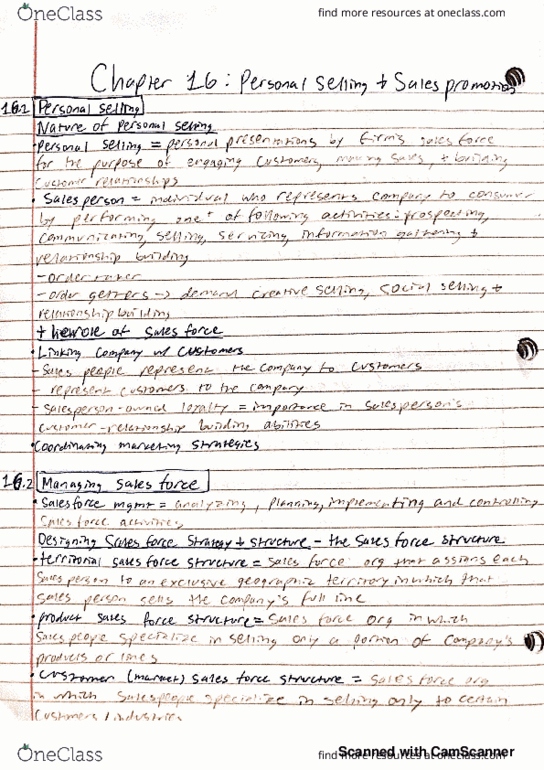 OneClass
find more resources at oneclass.com
Chapter 16: Personal selling + Sales promotion
16.1 Personal selling
Nature of Personal selling
• Personal selling = personal presentations by firm's sales force
for the purpose of engaging customers, making sales, + building
customer relationships
• Salesperson = individual who represents company to consumer
by performing one+ of following activities: prospecting,
communicating, selling, servicing, information gathering +
relationship building
- order taker
- order getters -> demand creative selling, social selling +
relationship building
role of sales force
• Linking company w/ customers
- Sales people represent the company to customers
- represent customers to the company
- salesperson-owned loyalty = importance in salesperson's
customer-relationship building abilities
• Coordinating marketing strategies
16.2 Managing sales force
• Salesforce mgmt = analyzing, planning, implementing and controlling
sales force activities
Designing sales force strategy + structure - the sales force structure
• territorial sales force structure = sales force org that assigns each
sales person to an exclusive geographic territory in which that
sales person sells the company's full line
• product sales force structure = sales force org in which
salespeople specialize in selling only a portion of company's
products or lines
• customer (market) sales force structure = sales force org
in which salespeople specialize in selling only to certain
customers / industries
OneClass
find more resources at oneclass.com
Scanned with CamScanner